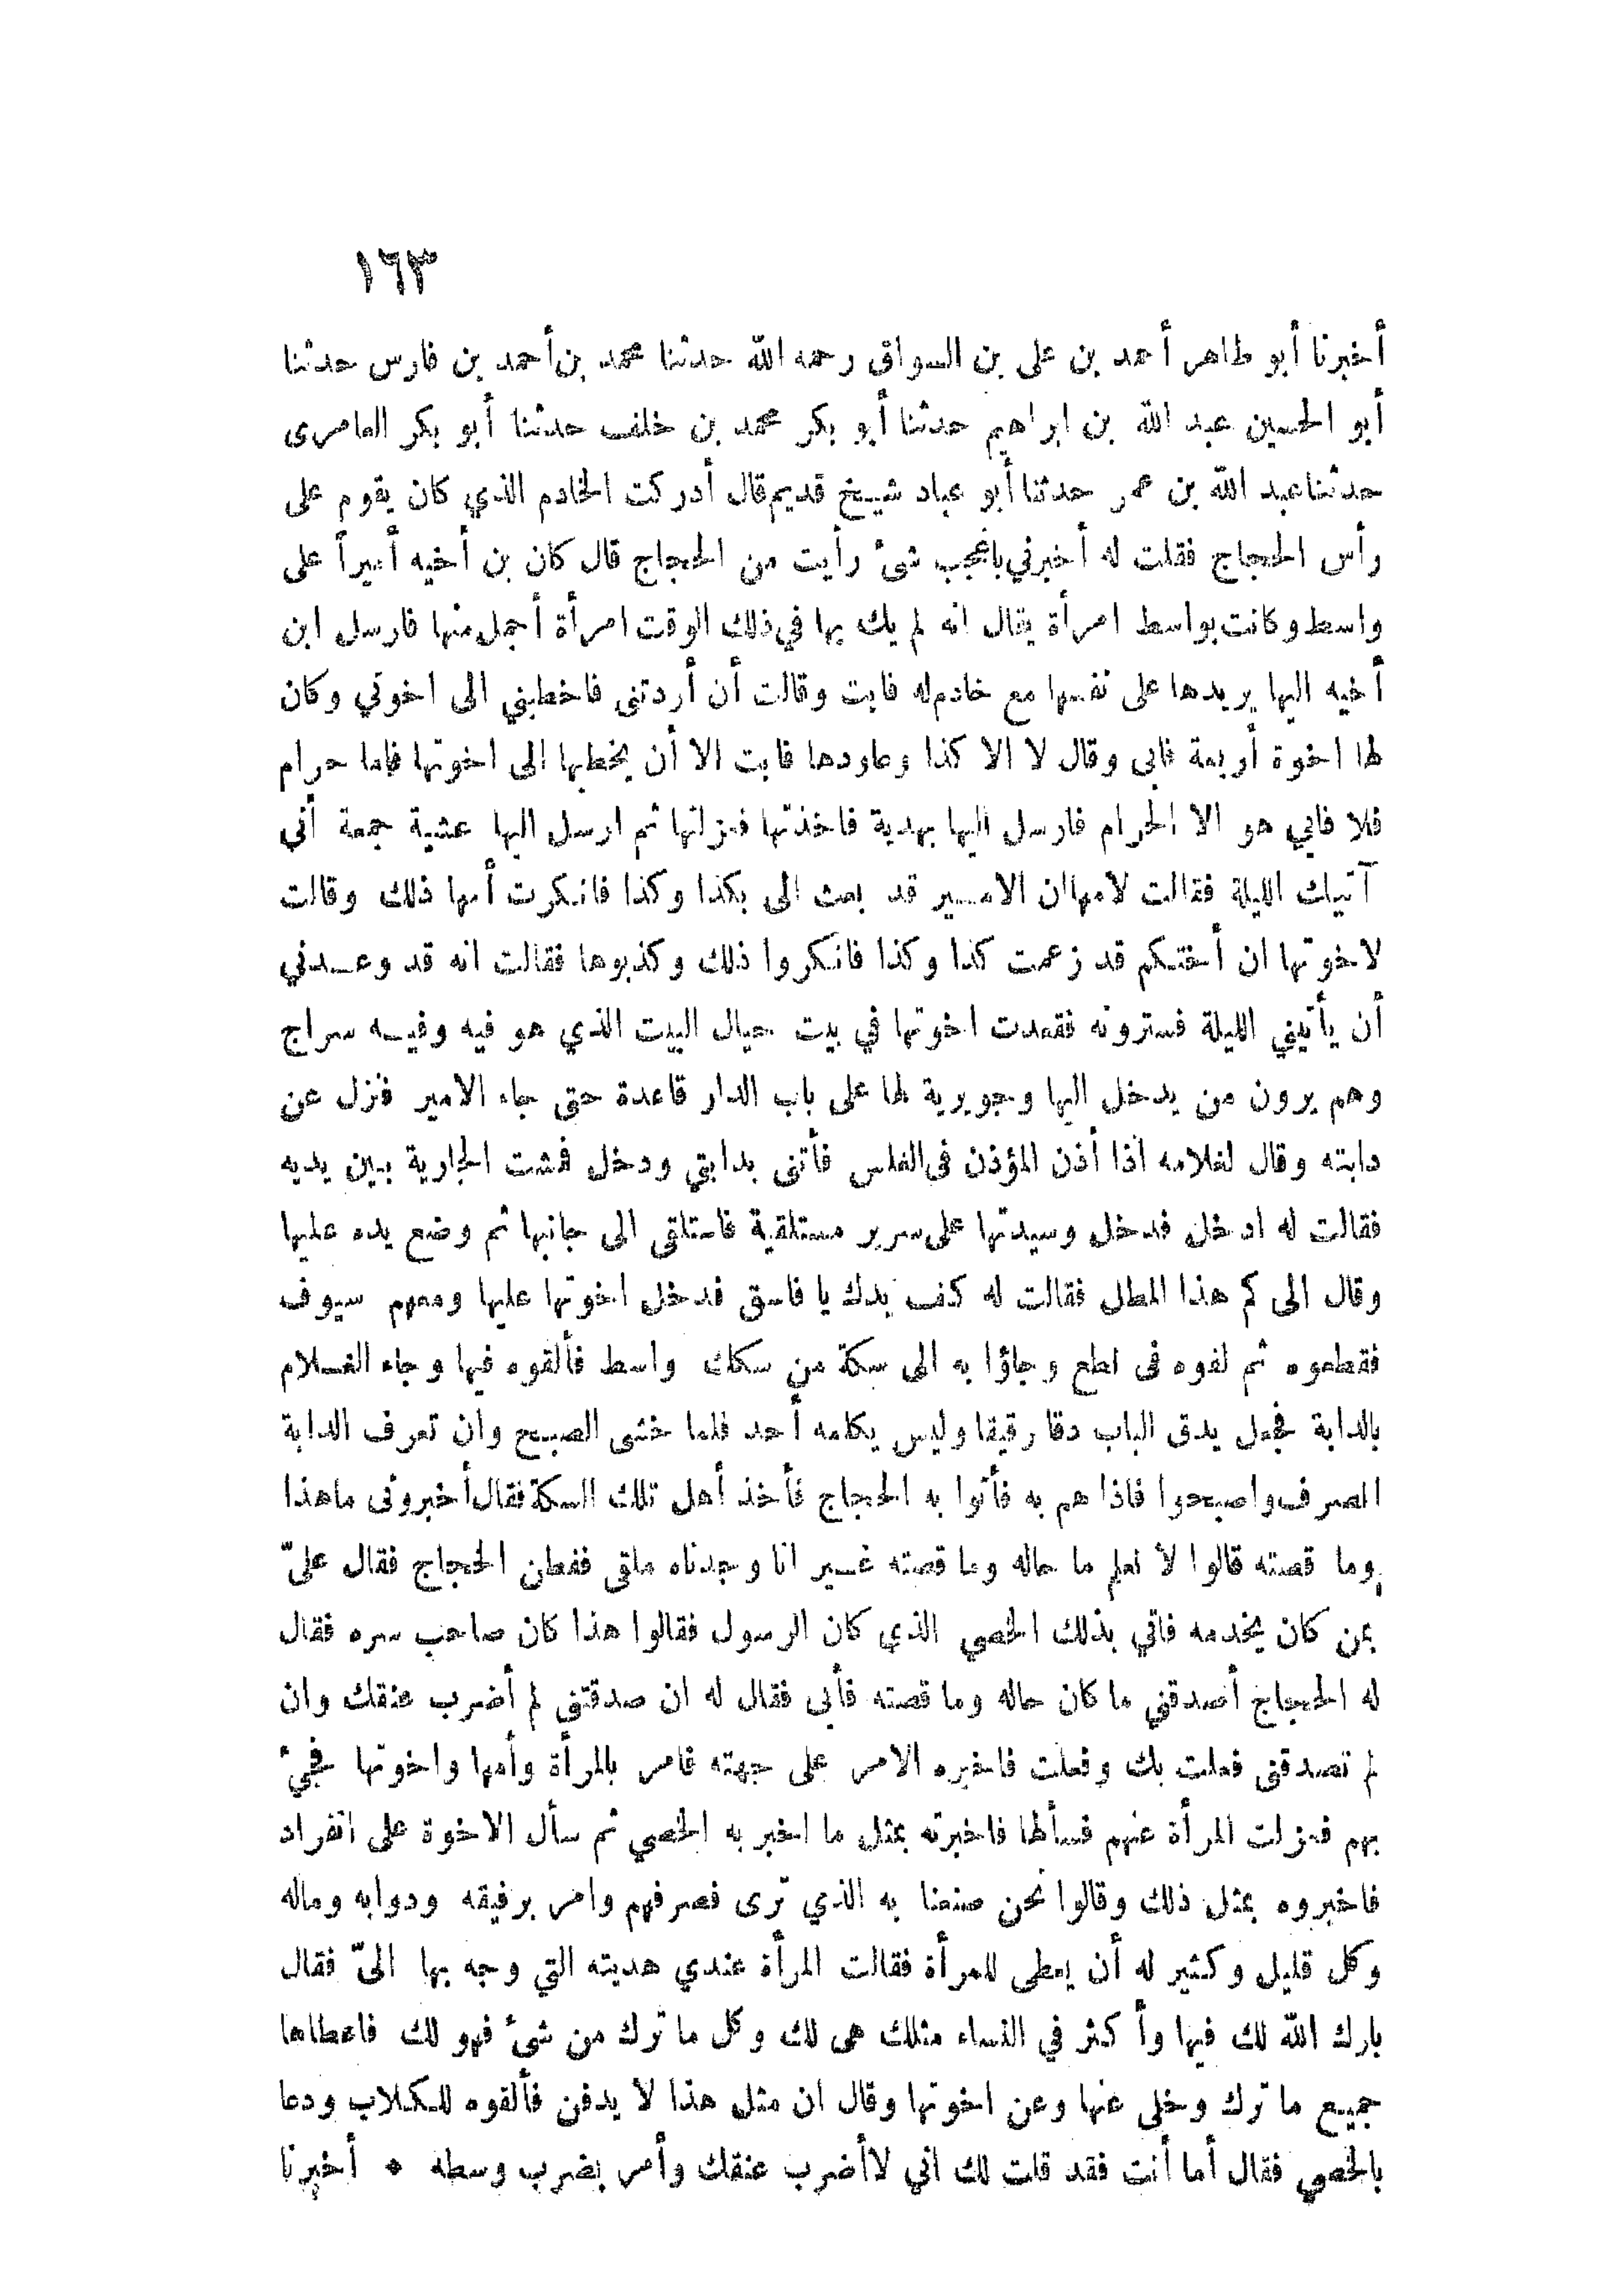 ١٦٣
أخبرنا أبو طاهر أحمد بن على بن السواق رحمه الله حدثنا محمد بن أحمد بن فارس حدثنا
أبو الحسين عبد الله بن ابراهيم حدثنا أبو بكر محمد بن خلف حدثنا أبو بكر العامرى
حدثنا عبد الله بن عمر حدثنا أبو عباد شيخ قديم قال أدركت الخادم الذي كان يقوم على
رأس الحجاج فقلت له أخبرني باعجب شئ رأيت من الحجاج قال كان بن أخيه أميراً على
واسط وكانت بواسط امرأة يقال انه لم يك بها في ذلك الوقت امرأة أجمل منها فارسل ابن
أخيه اليها يريدها على نفسها مع خادم له فابت وقالت أن أردتنى فاخطبني الى اخوتي وكان
لها اخوة أربعة فابى وقال لا الا كذا وعاودها فابت الا أن يخطبها الى اخوتها فاما حرام
فلا فابي هو الا الحرام فارسل اليها بهدية فاخذتها فعزلتها ثم ارسل اليها عشية جمعة أني
آتيك الليلة فقالت لامها ان الامير قد بعث الى بكذا وكذا فانكرت أمها ذلك وقالت
لاخوتها ان أختكم قد زعمت كذا وكذا فانكروا ذلك وكذبوها فقالت انه قد وعدني
أن يأتيني الليلة فسترونه فقعدت اخوتها في بيت حيال البيت الذي هو فيه وفيه سراج
وهم يرون من يدخل اليها وجويرية لها على باب الدار قاعدة حتى جاء الامير فنزل عن
دابته وقال لغلامه اذا أذن المؤذن فى الغلس فأتنى بدابتي ودخل فمشت الجارية بين يديه
فقالت له ادخل فدخل وسيدتها على سرير مستلقية فاستلقى الى جانبها ثم وضع يده عليها
وقال الى كم هذا المطل فقالت له كف يدك يا فاسق فدخل اخوتها عليها ومعهم سيوف
فقطعوه ثم لفوه فى نطع وجاؤا به الى سكة من سكك واسط فألقوه فيها وجاء الغلام
بالدابة فجعل يدق الباب دقا رقيقا وليس يكلمه أحد فلما خشى الصبح وان تعرف الدابة
انصرف واصبحوا فاذا هم به فأتوا به الحجاج فأخذ أهل تلك السكة فقال أخبرونى ما هذا
وما قصته قالوا لا نعلم ما حاله وما قصته غير انا وجدناه ملقى ففطن الحجاج فقال علىّ
بمن كان يخدمه فاتي بذلك الخصي الذي كان الرسول فقالوا هذا كان صاحب سره فقال
له الحجاج أصدقني ما كان حاله وما قصته فأبى فقال له ان صدقتني لم أضرب عنقك وان
لم تصدقنى فعلت بك وفعلت فاخبره الامر على جهته فامر بالمرأة وأمها واخوتها فجيئ
بهم فعزلت المرأة عنهم فسألها فاخبرته بمثل ما اخبر به الخصي ثم سأل الاخوة على انفراد
فاخبروه بمثل ذلك وقالوا نحن صنعنا به الذي ترى فصرفهم وامر برفيقه ودوابه وماله
وكل قليل وكثير له أن يعطى للمرأة فقالت المرأة عندي هديته التي وجه بها الىّ فقال
بارك الله لك فيها وأكثر في النساء مثلك هى لك وكل ما ترك من شئ فهو لك فاعطاها
جميع ما ترك وخلى عنها وعن اخوتها وقال ان مثل هذا لا يدفن فألقوه للكلاب ودعا
بالخصي فقال أما أنت فقد قلت لك اني لا أضرب عنقك وأمر بضرب وسطه * أخبرنا